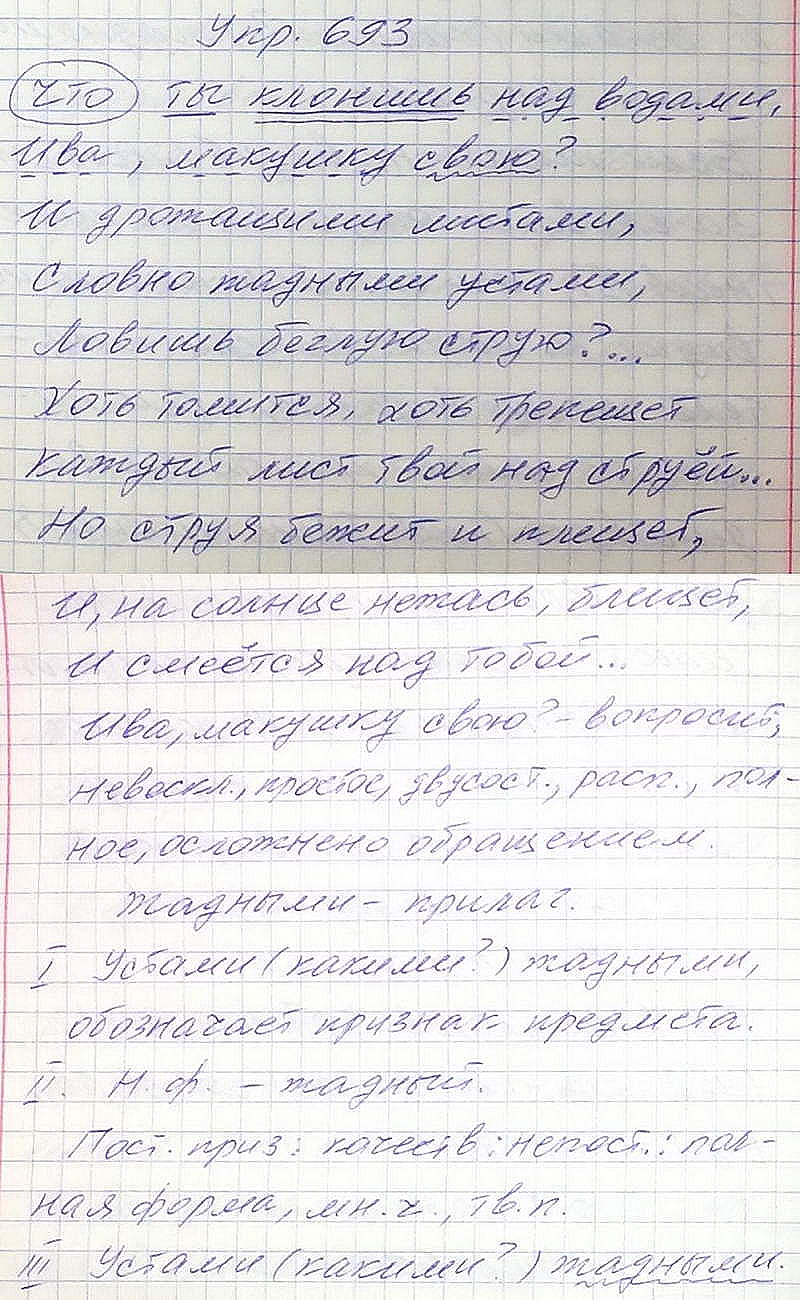 Упр. 693
Что ты клонишь над водами,
Ива, макушку свою?
И дрожащими листами,
Словно жадными устами,
Ловишь беглую струю?...
Хоть томится, хоть трепещет
Каждый лист твой над струёй...
Но струя бежит и плещет,
И, на солнце нежась, блещет,
И смеётся над тобой...
Ива, макушку свою? - вопросит,
невоскл., простое, двусост., расп., пол-
ное, осложнено обращением.
Жадными - прилаг.
I Устами (какими?) жадными,
обозначает признак предмета.
II. Н. ф. - жадный.
Пост. приз: качеств; непост.: пол-
ная форма, мн. ч., тв. п.
III Устами (какими?) жадными.